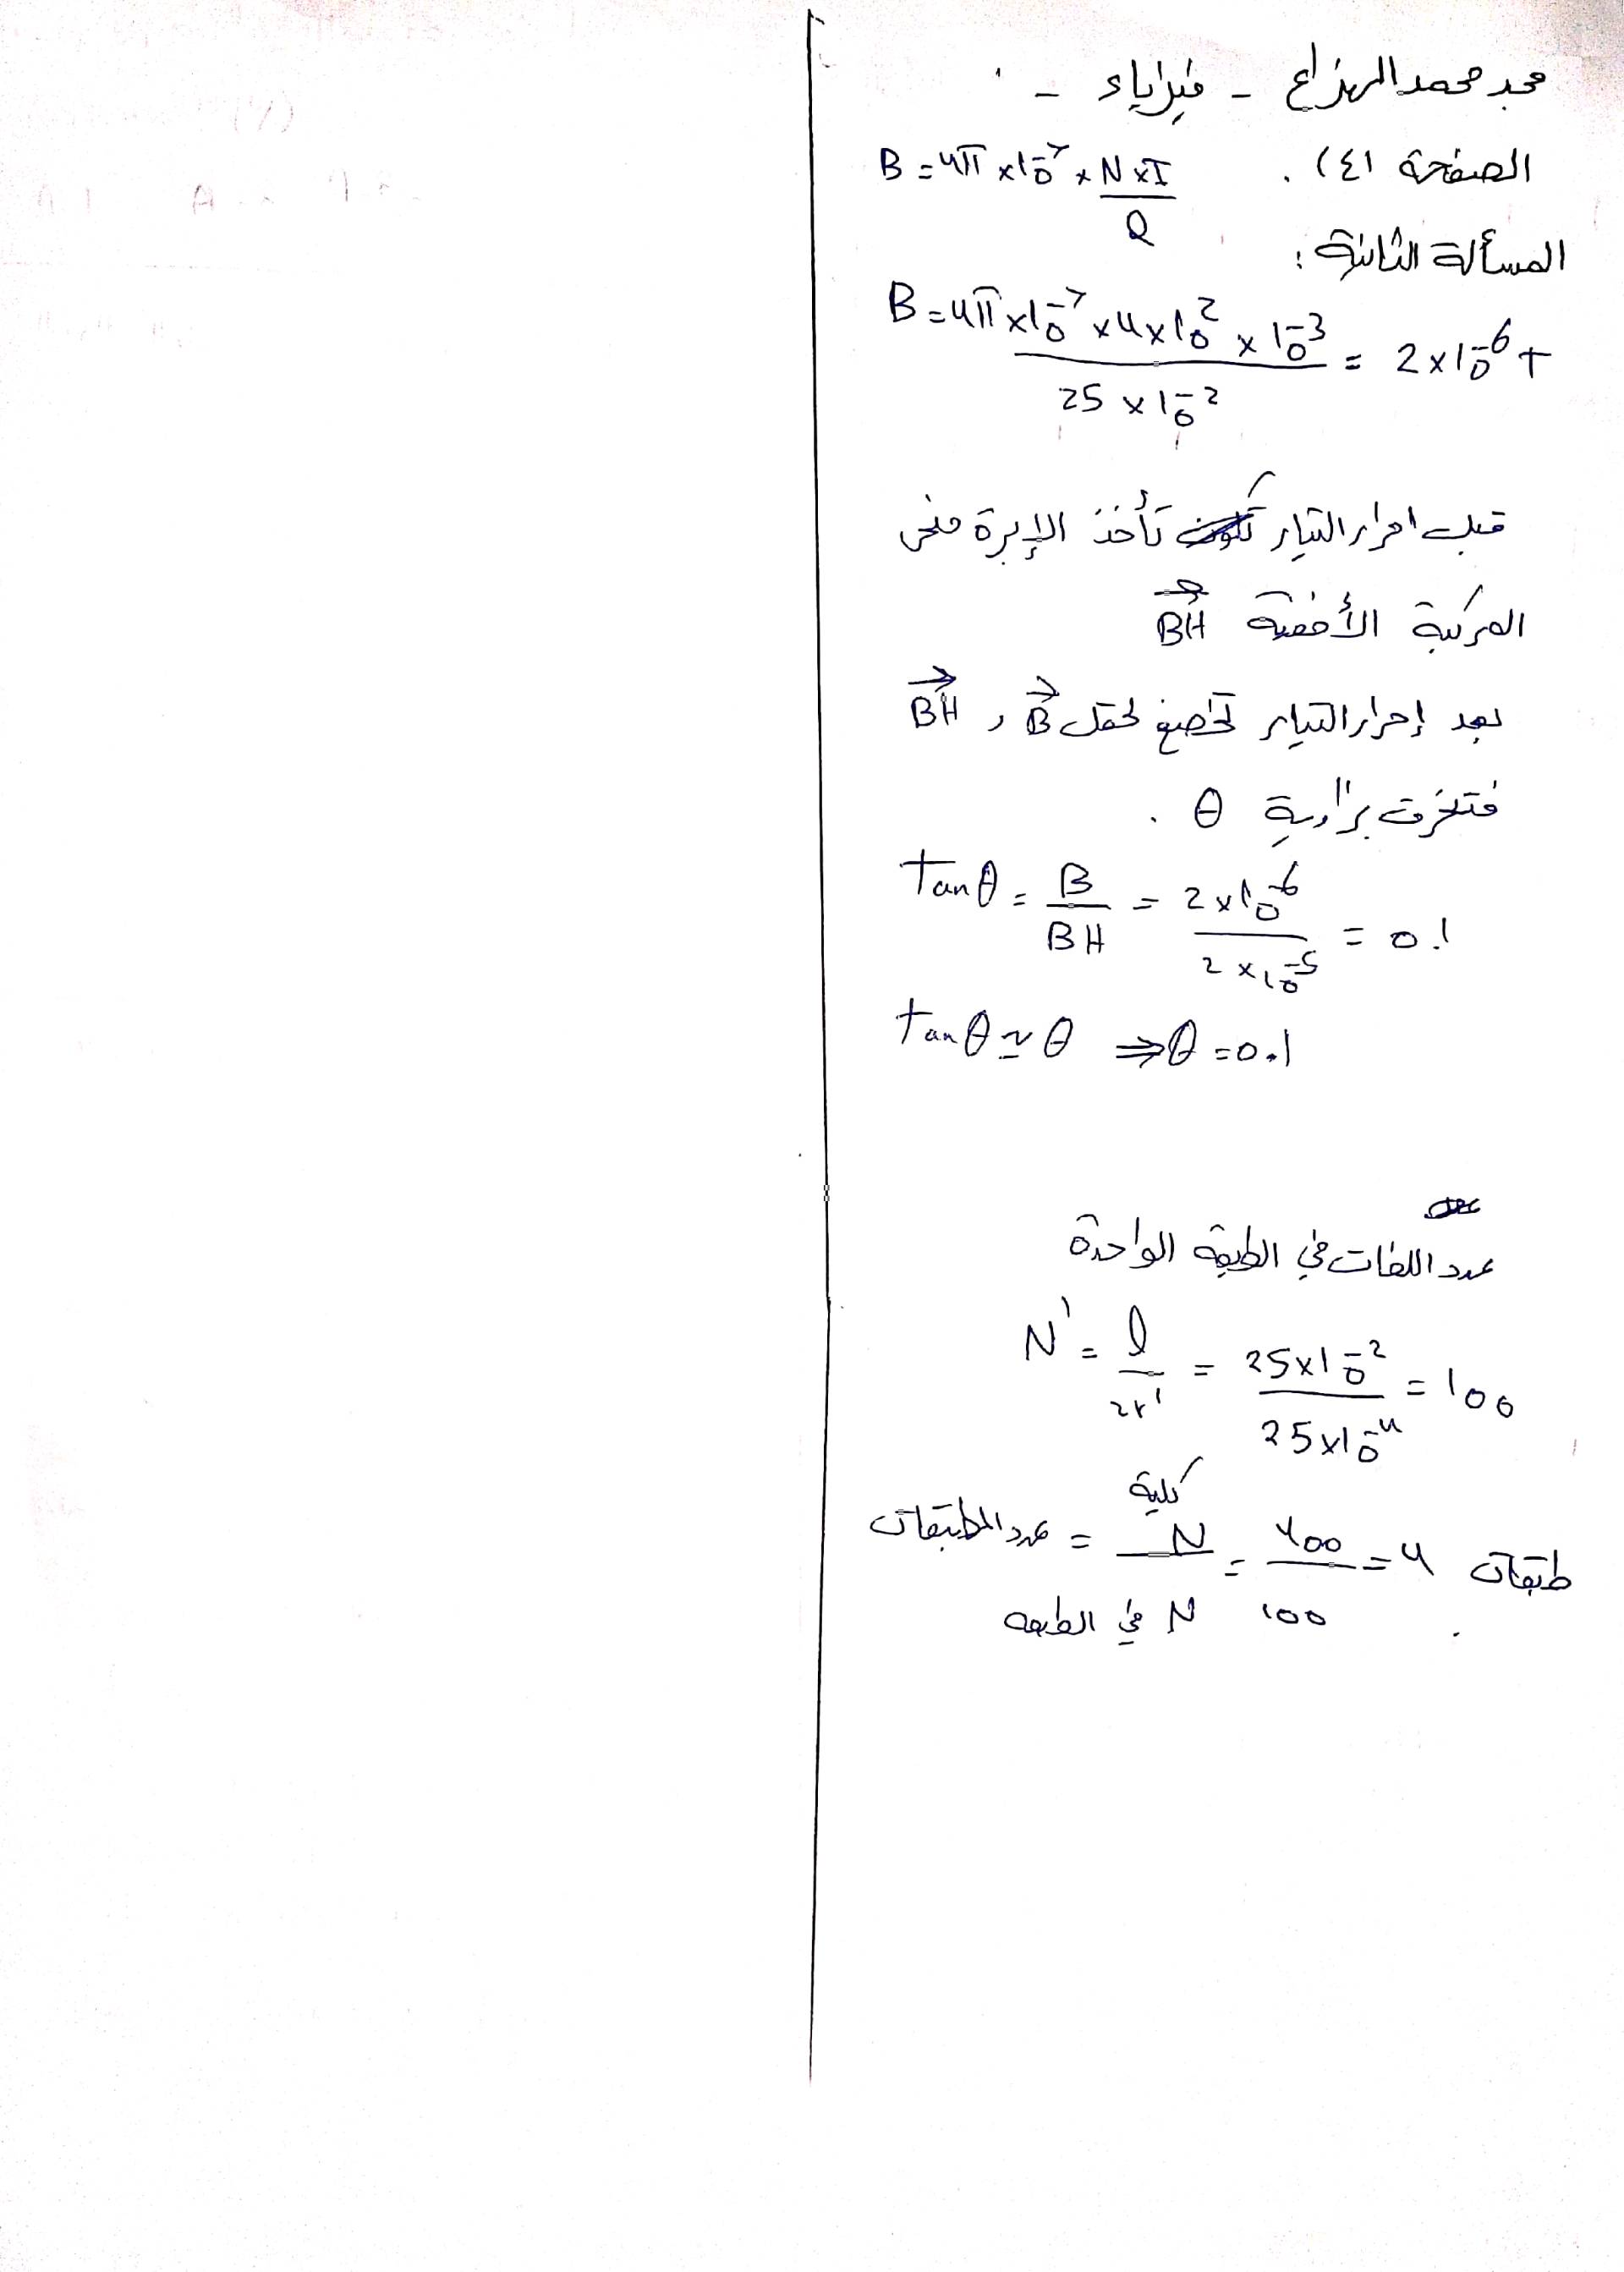 مجد محمد الهزاع - فيزياء -
الصفحة (٤١
B = 4π × 10⁻⁷ × N × I / l
المسألة الثانية :
B = 4π × 10⁻⁷ × 4 × 10² × 10⁻³ / 25 × 10⁻² = 2 × 10⁻⁶ T
قبل امرار التيار تأخذ الإبرة منحى
المركبة الأفقية BH
بعد إمرار التيار تخضع لحقل B , BH
فتنحرف بزاوية θ .
tan θ = B / BH = 2 × 10⁻⁶ / 2 × 10⁻⁵ = 0.1
tan θ ≃ θ ⇒ θ = 0.1
عدد اللفات في الطبقة الواحدة
N' = l / 2r' = 25 × 10⁻² / 25 × 10⁻⁴ = 100
عدد الطبقات = N كلية / N في الطبقة = 400 / 100 = 4 طبقات